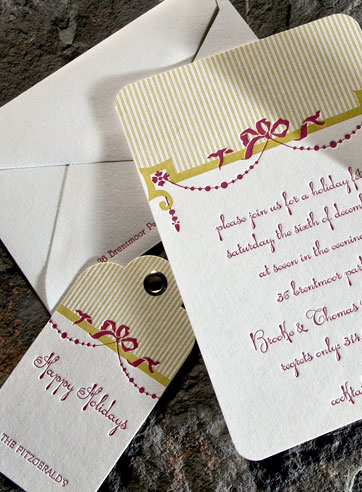 please join us for a holiday
saturday, the sixth of
at seven in the evening
36 brentmoor
Brooke & Thomas
regrets only: 314.
36 Brentmoor
Happy Holidays
THE FITZGERALDS